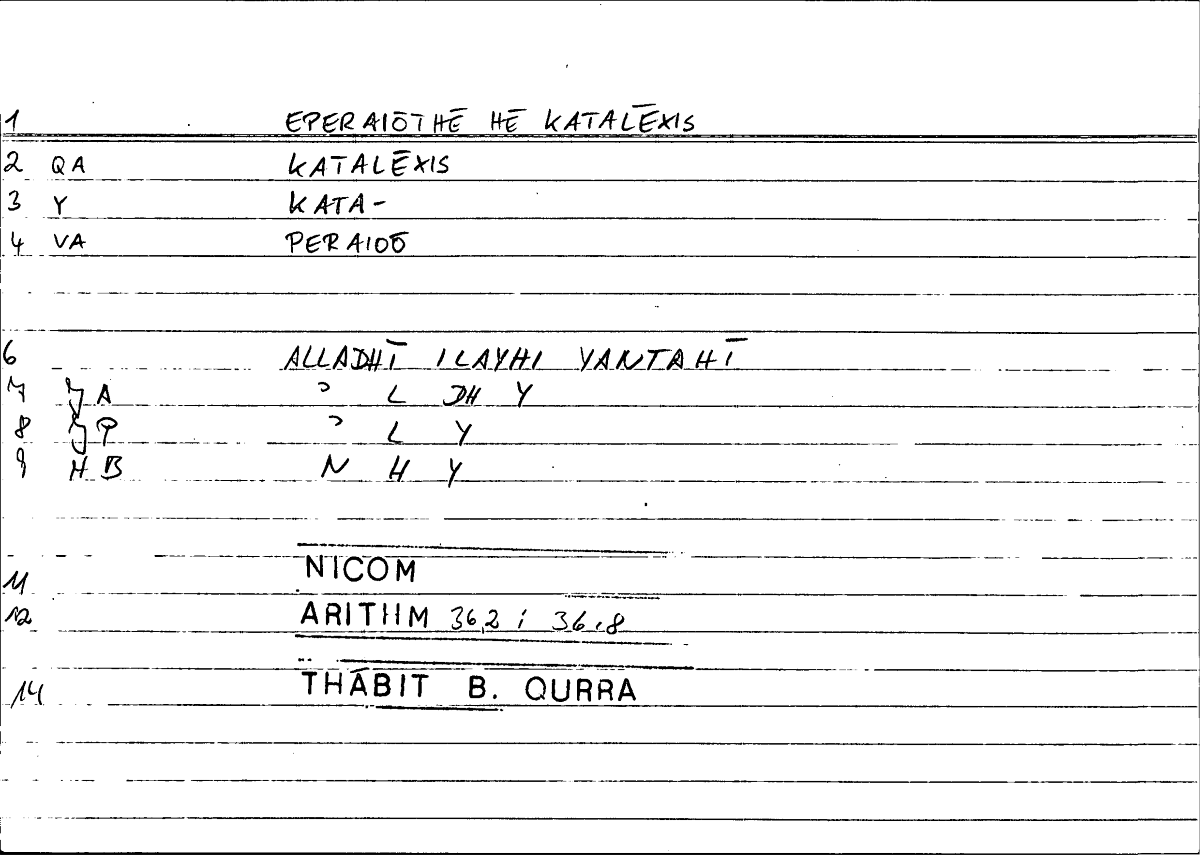 1 EPERAIŌTHĒ HĒ KATALĒXIS
2 QA KATALĒXIS
3 Y KATA-
4 VA PERAIOŌ
6 ALLADHĪ ILAYHI YANTAHĪ
7 A ʾ L DH Y
8 P ʾ L Y
9 H B N H Y
11 NICOM
12 ARITHM 36,2 ; 36,8
14 THĀBIT B. QURRA